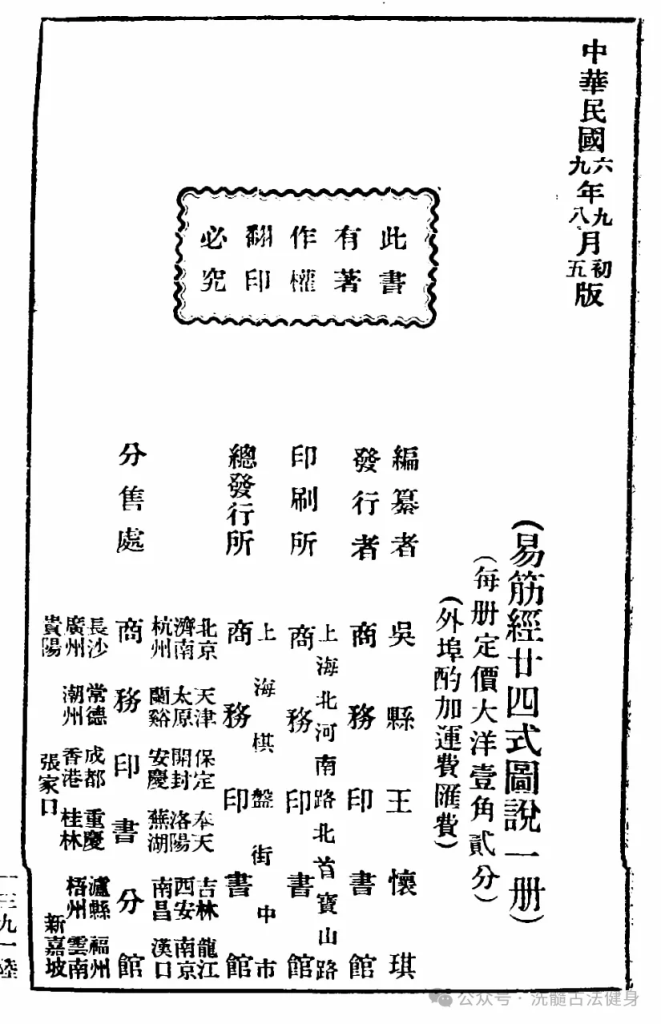 中華民國六九年九八月初五版
此書
有著
作權
翻印
必究
(易筋經廿四式圖說一册)
(每册定價大洋壹角貳分)
(外埠酌加運費匯費)
編纂者 吳縣王懷琪
發行者 商務印書館
印刷所 上海北河南路北首寶山路
商務印書館
總發行所 上海棋盤街中市
商務印書館
分售處
北京 天津 保定 奉天 吉林 龍江
濟南 太原 開封 洛陽 西安 南京
杭州 蘭谿 安慶 蕪湖 南昌 漢口
商務印書分館
長沙 常德 成都 重慶 瀘縣 福州
廣州 潮州 香港 桂林 梧州 雲南
貴陽 張家口 新嘉坡
一三九一陸
公众号·洗髓古法健身